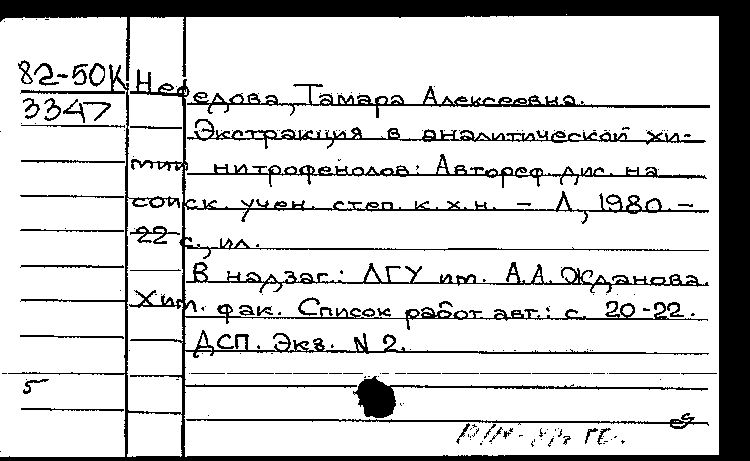 82-50К
3347
Нефедова, Тамара Алексеевна.
Экстракция в аналитической хи-
мии нитрофенолов: Автореф. дис. на
соиск. учен. степ. к.х.н. – Л., 1980. –
22 с., ил.
В надзаг.: ЛГУ им. А.А. Жданова.
Хим. фак. Список работ авт.: с. 20-22.
ДСП. Экз. N 2.
5